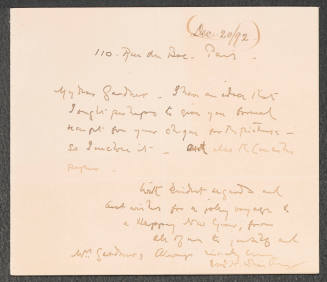 (Dec. 20/92)
110 - Rue du Bac. Paris.
My dear Gardner - I have an idea that
I ought perhaps to give you formal
receipt for your cheque for the picture -
so I enclose it - and also the
papers
With kindest regards and
best wishes for a jolly voyage &
a Happy New Year, from
all of us to yourself and
Mrs Gardner, Always sincerely yours